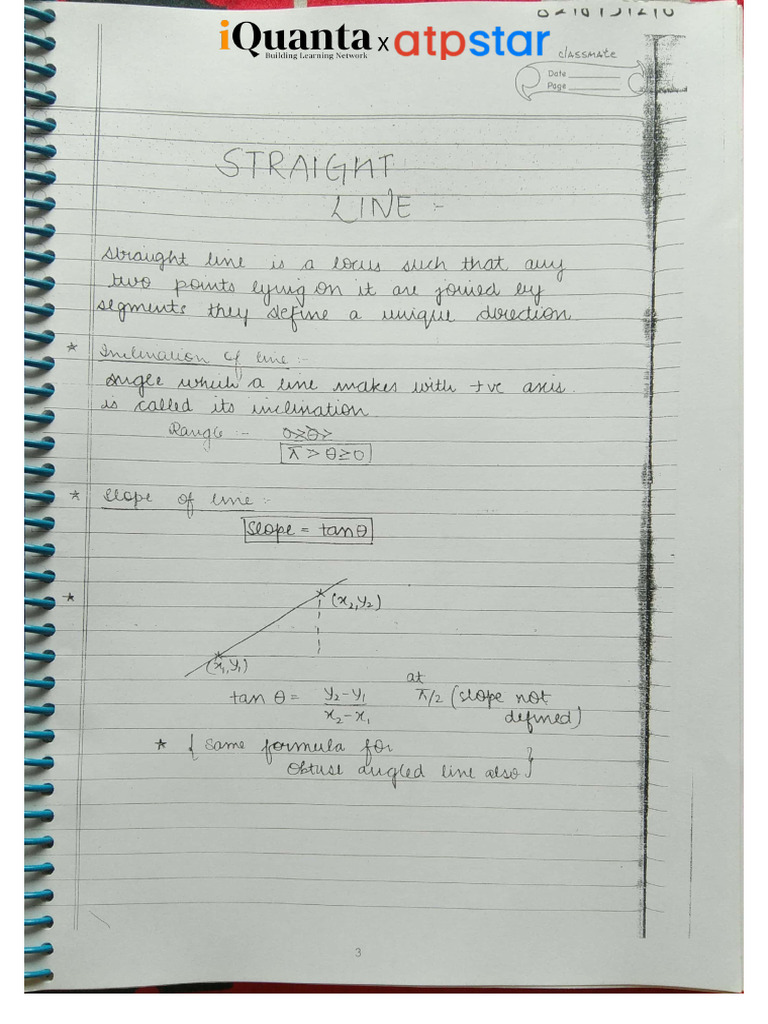 iQuanta x atpstar
Building Learning Network
classmate
Date
Page
STRAIGHT
LINE :-
Straight line is a locus such that any
two points lying on it are joined by
segments they define a unique direction
* Inclination of line :-
Angle which a line makes with +ve axis
is called its inclination
Range :- 0≥θ≥
π > θ ≥ 0
* Slope of line :-
Slope = tanθ
*
(x₂, y₂)
(x₁, y₁)
tan θ = y₂-y₁ / x₂-x₁ at π/2 (slope not
defined)
* { same formula for
obtuse angled line also }
3